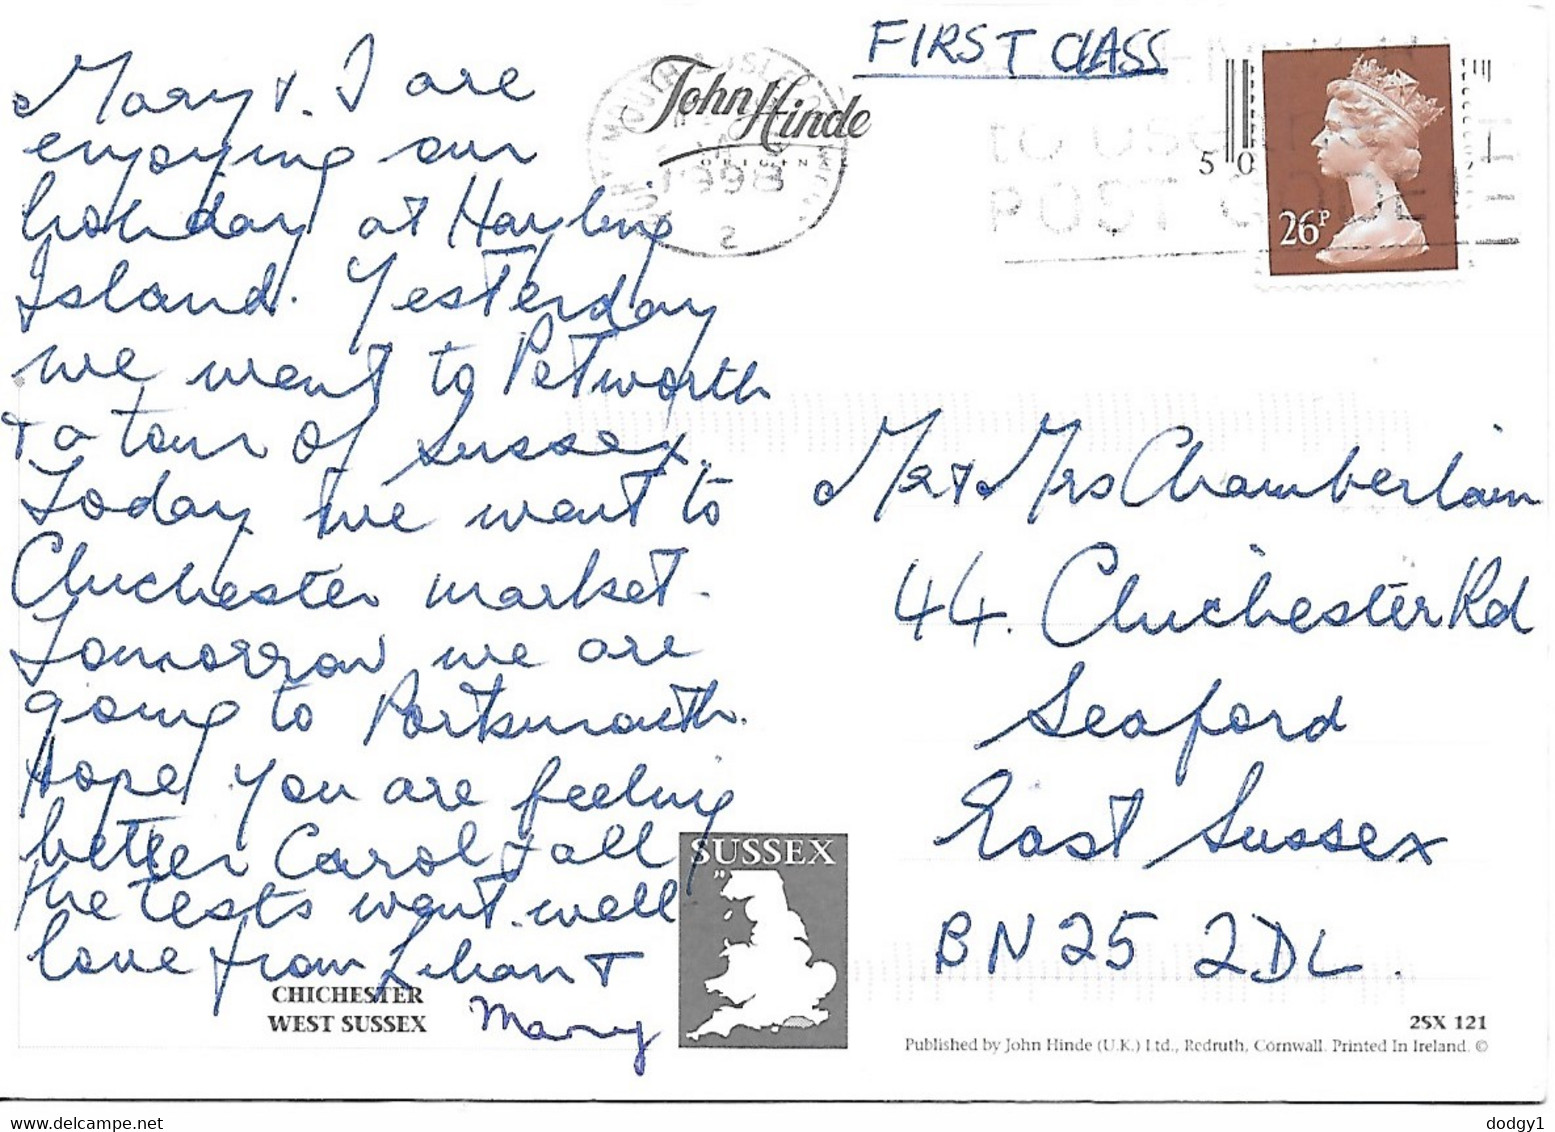 Mary & I are
enjoying our
holiday at Hayling
Island. Yesterday
we went to Petworth
& a tour of Sussex.
Today we went to
Chichester market.
Tomorrow we are
going to Portsmouth.
Hope you are feeling
better Carol & all
the tests went well
love from Lilian &
Mary
CHICHESTER
WEST SUSSEX
John Hinde
ORIGINAL
1998
2
FIRST CLASS
50
to use
POST CODE
26P
Mr & Mrs Chamberlain
44. Chichester Rd
Seaford
East Sussex
BN25 2DL.
SUSSEX
2SX 121
Published by John Hinde (U.K.) Ltd., Redruth, Cornwall. Printed In Ireland. ©
www.delcampe.net
dodgy1